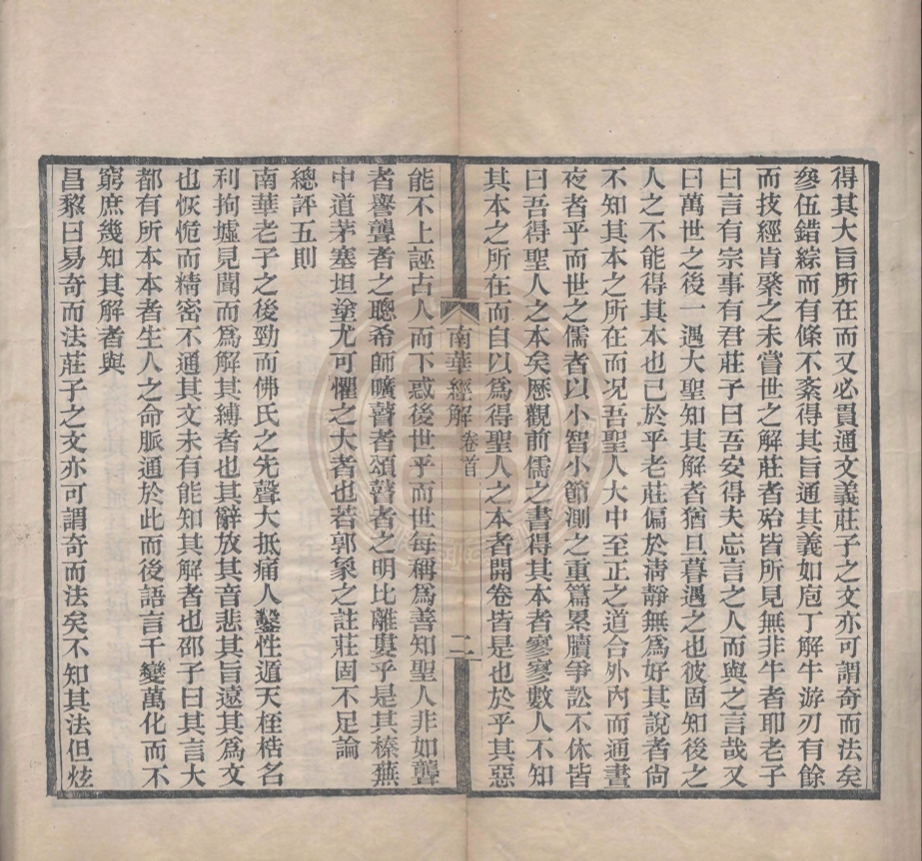 得其大旨所在而又必貫通文義莊子之文亦可謂奇而法矣
參伍錯綜而有條不紊得其旨通其義如庖丁解牛游刃有餘
而技經肯綮之未嘗世之解莊者殆皆所見無非牛者耶老子
曰言有宗事有君莊子曰吾安得夫忘言之人而與之言哉又
曰萬世之後一遇大聖知其解者猶旦暮遇之也彼固知後之
人之不能得其本也已於乎老莊偏於淸靜無爲好其說者尙
不知其本之所在而況吾聖人大中至正之道合外內而通晝
夜者乎而世之儒者以小智小節測之重篇累牘爭訟不休皆
曰吾得聖人之本矣歷觀前儒之書得其本者寥寥數人不知
其本之所在而自以爲得聖人之本者開卷皆是也於乎其惡
南華經解 卷首 二
能不上誣古人而下惑後世乎而世每稱爲善知聖人非如聾
者譽聾者之聰希師曠瞽者頌瞽者之明比離婁乎是其榛蕪
中道茅塞坦塗尤可懼之大者也若郭象之註莊固不足論
總評五則
南華老子之後勁而佛氏之先聲大抵痛人鑿性遁天桎梏名
利拘墟見聞而爲解其縛者也其辭放其音悲其旨遠其爲文
也恢恑而精密不通其文未有能知其解者也邵子曰其言大
都有所本本者生人之命脈通於此而後語言千變萬化而不
窮庶幾知其解者與
昌黎曰易奇而法莊子之文亦可謂奇而法矣不知其法但炫